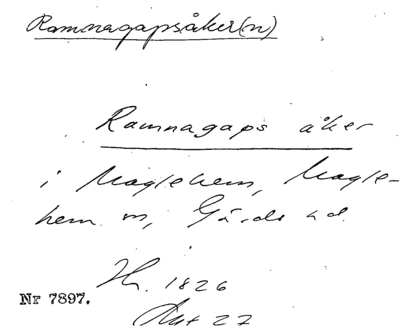 Ramnagapsåker(n)
Ramnagaps åker
i Maglehem, Magle-
hem sn, Gärds hd.
Hr. 1826
Nr 7897.
Akt 27